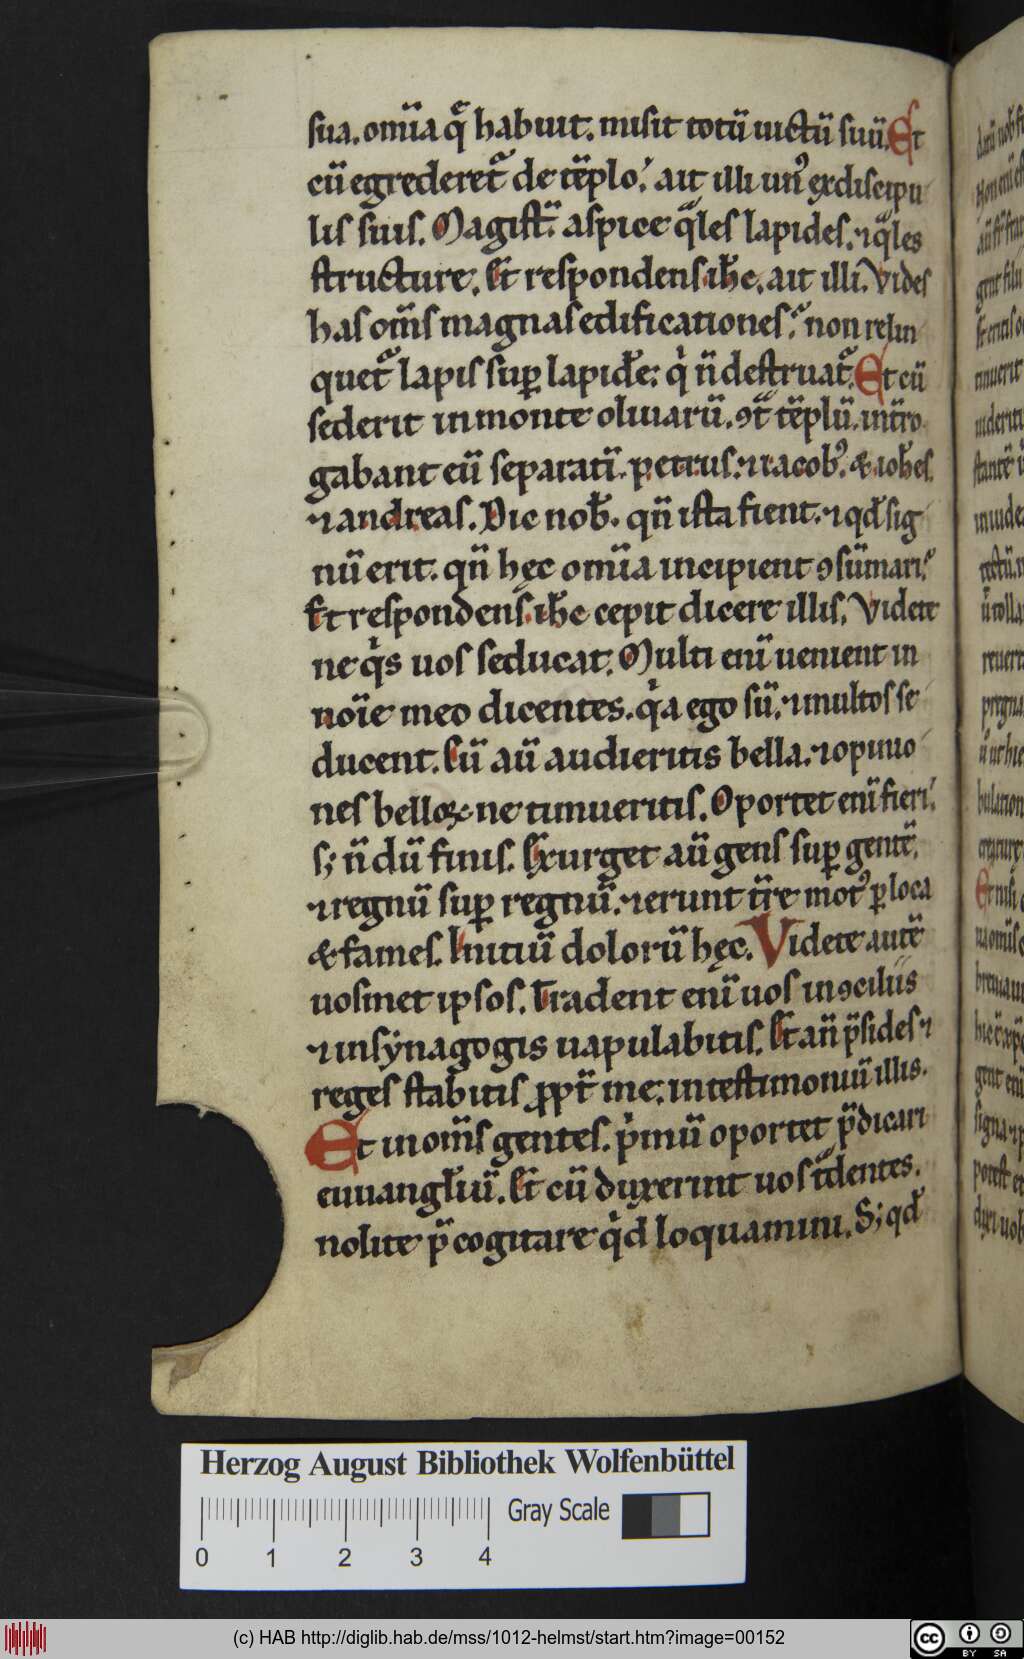 sua. om̄ia q̄ habuit. misit totū uictū suū. Et
cū egrederet᷑ de tēplo. ait illi un᷒ ex discipu
lis suis. Magist̄. aspice q̄les lapides. ⁊ q̄les
structure. Et respondens ih̄c. ait illi. Vides
has om̄s magnas edificationes. non relin
quet᷑ lapis suꝑ lapidē. q̇ n̄ destruat᷑. Et cū
sederit in monte oliuarū. ꝯt̄ tēplū. int̄ro
gabant eū separatī. petrus. ⁊ iacob᷒. & ioh̄es.
⁊ andreas. Dic nob̄. qn̄ ista fient. ⁊ qd̄ sig
nū erit. qn̄ hęc om̄ia incipient ꝯsūmari.
Et respondens ih̄c cepit dicere illis. Videte
ne q̇s uos seducat. Multi enī uenient in
noīe meo dicentes. q̇a ego sū. ⁊ multos se
ducent. Cū aū audieritis bella. ⁊ opinio
nes belloꝝ. ne timueritis. Oportet enī fieri.
s; n̄dū finis. Exurget aū gens suꝑ gentē.
⁊ regnū suꝑ regnū. ⁊ erunt t̄re mot᷒ ꝑ loca
& fames. Initiū dolorū hęc. Videte autē
uosmet ipsos. Tradent enī uos in ꝯciliis
⁊ in sẏnagogis uapulabitis. Et an̄ p̄sides ⁊
reges stabitis ꝓpt̄ me. in testimoniū illis.
Et in om̄s gentes. pͥmū oportet p̄dicari
euuangl̄iū. Et cū duxerint uos t᷑dentes.
nolite p̄cogitare q̇d loquamini. S; qd̄
Herzog August Bibliothek Wolfenbüttel
Gray Scale
0 1 2 3 4
(c) HAB http://diglib.hab.de/mss/1012-helmst/start.htm?image=00152
CC BY SA